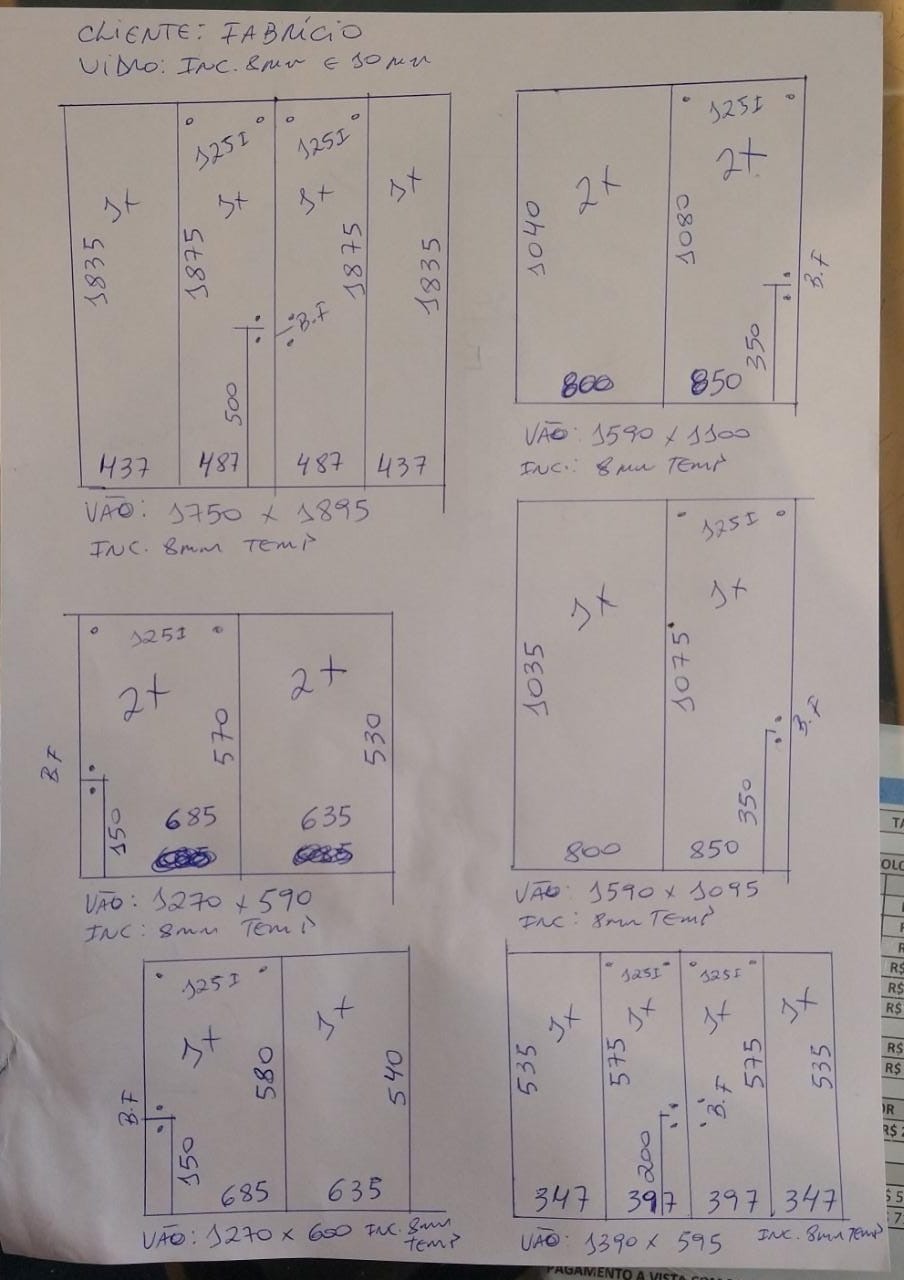 CLIENTE: FABRÍCIO
VIDRO: INC. 8mm E 10mm
125I 125I
1+ 1+ 1+ 1+
1835 1875 1875 1835
B.F
500
437 487 487 437
VÃO: 1750 x 1895
INC. 8mm TEMP
125I
2+ 2+
1040 1080
B.F
350
800 850
VÃO: 1590 x 1100
INC.: 8mm TEMP
125I
2+ 2+
570 530
B.F
150
685 635
VÃO: 1270 x 590
INC: 8mm TEMP
125I
1+ 1+
1035 1075
B.F
350
800 850
VÃO: 1590 x 1095
INC: 8mm TEMP
125I
1+ 1+
580 540
B.F
150
685 635
VÃO: 1270 x 600 INC. 8mm
TEMP
125I 125I
1+ 1+ 1+ 1+
535 575 575 535
B.F
200
347 397 397 347
VÃO: 1390 x 595 INC. 8mm TEMP
R$
R$
R$
R$
R$
PAGAMENTO A VISTA